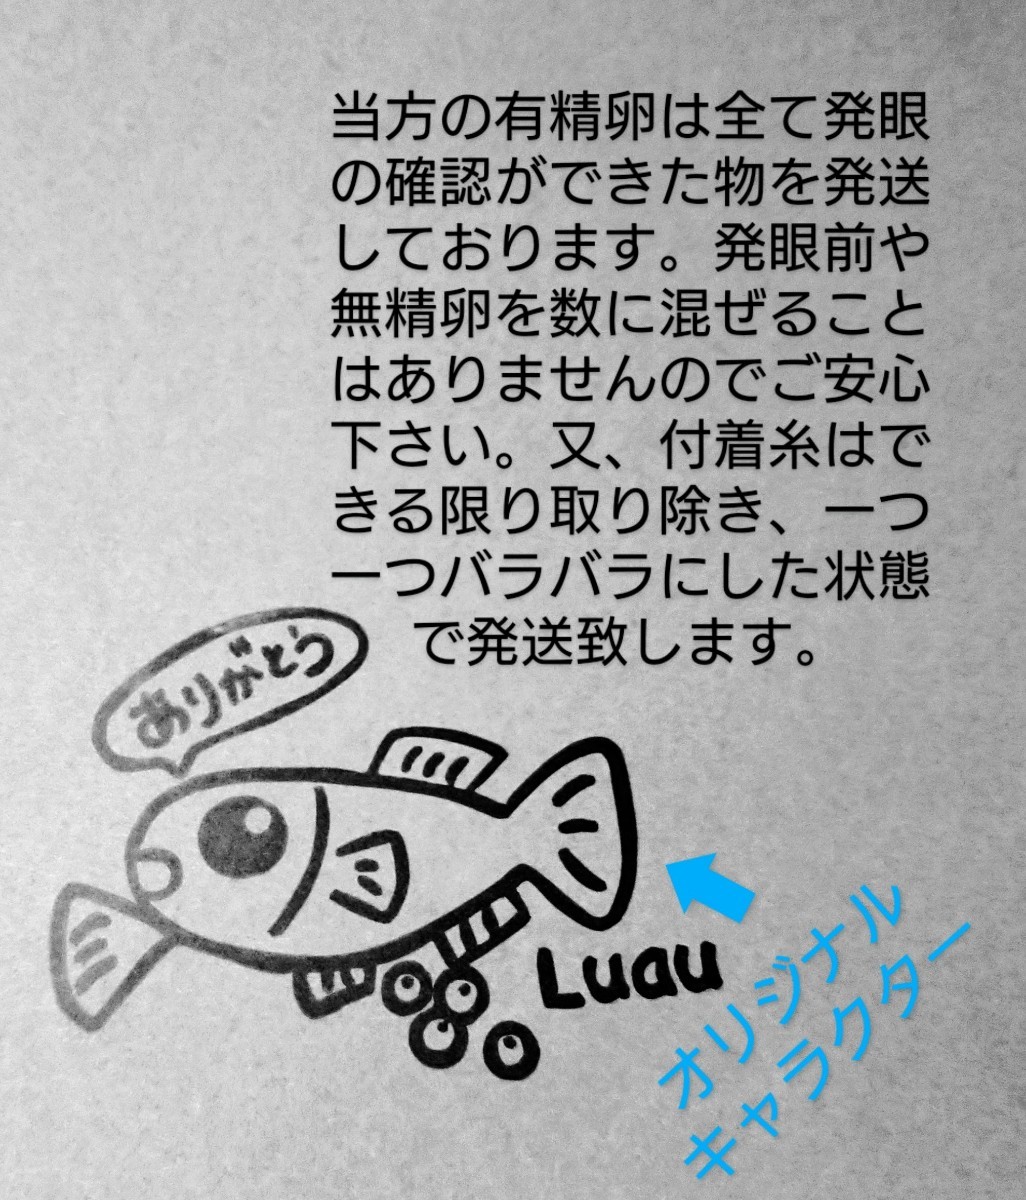 当方の有精卵は全て発眼
の確認ができた物を発送
しております。発眼前や
無精卵を数に混ぜること
はありませんのでご安心
下さい。又、付着糸はで
きる限り取り除き、一つ
一つバラバラにした状態
で発送致します。
ありがとう
Luau
オリジナル
キャラクター